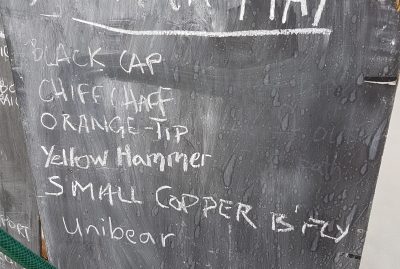 MAY
BLACK CAP
CHIFF CHAFF
ORANGE-TIP
Yellow Hammer
SMALL COPPER B'FLY
Unibear